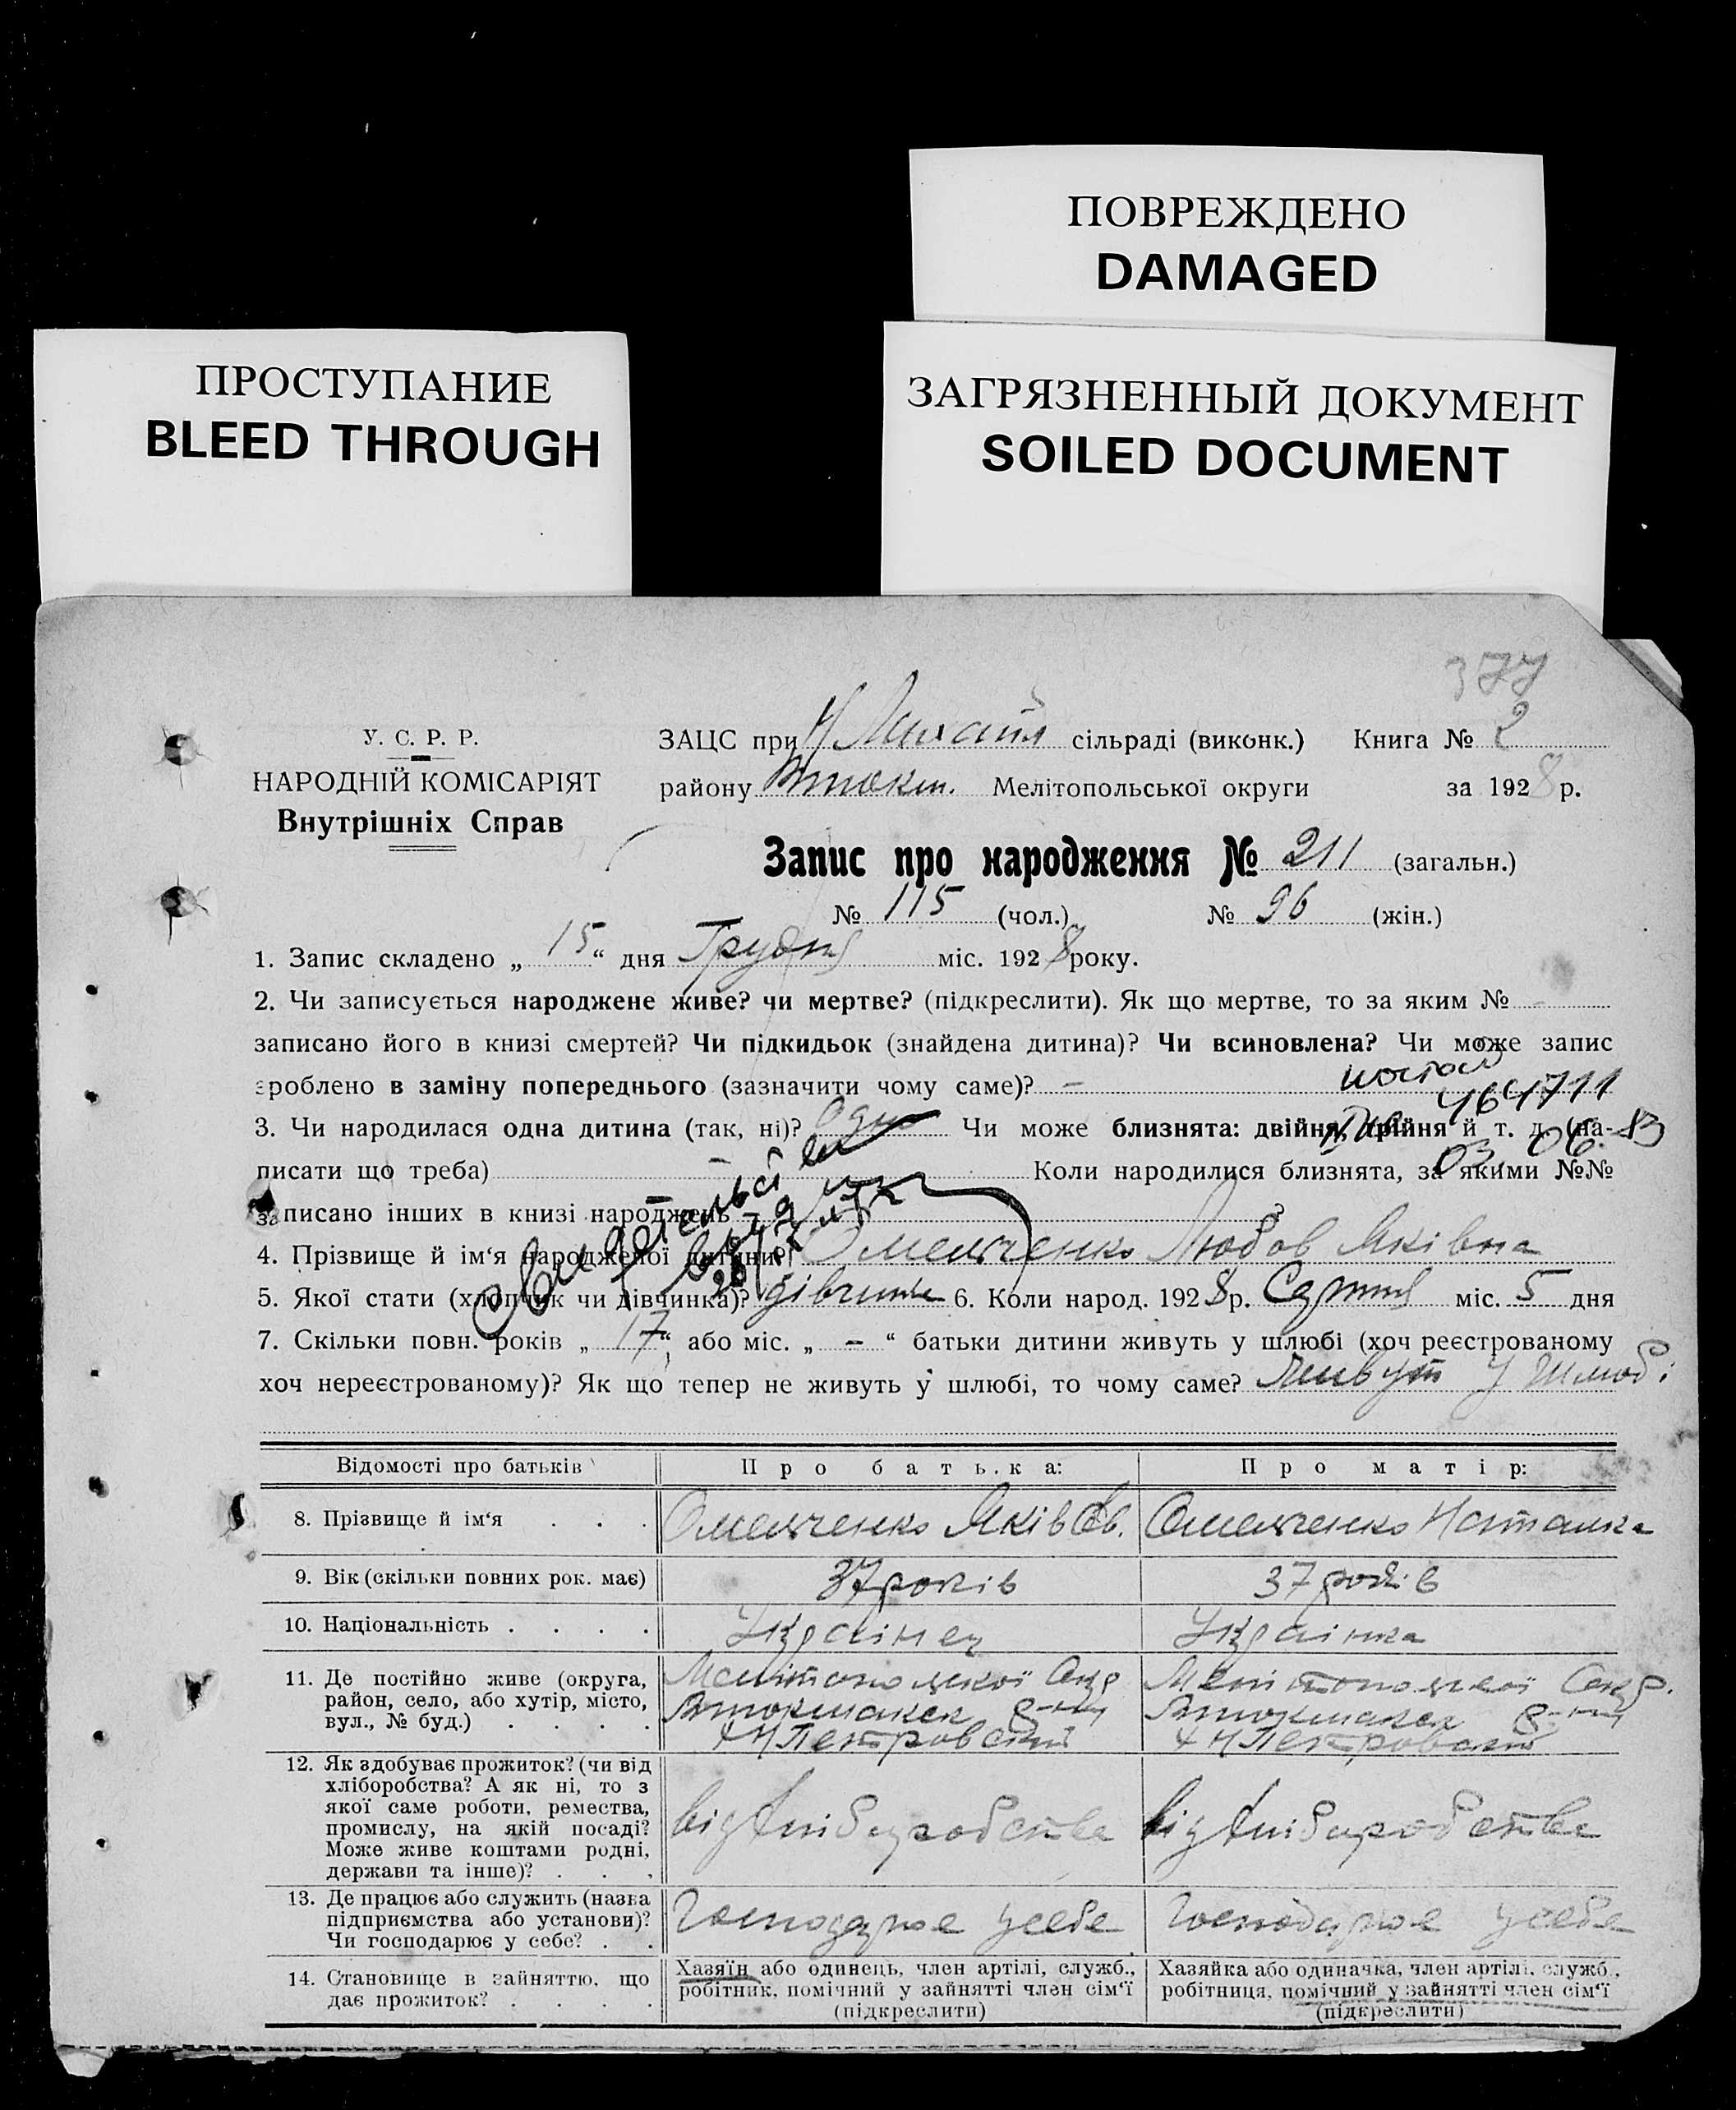 ПОВРЕЖДЕНО
DAMAGED
ПРОСТУПАНИЕ
BLEED THROUGH
ЗАГРЯЗНЕННЫЙ ДОКУМЕНТ
SOILED DOCUMENT
377
У. С. Р. Р.
НАРОДНІЙ КОМІСАРІЯТ
Внутрішніх Справ
ЗАЦС при сільраді (виконк.) Книга № 2
району Втокм. Мелітопольської округи за 1928 р.
Запис про народження № 211 (загальн.)
№ 115 (чол.) № 96 (жін.)
1. Запис складено „ 15 “ дня Грудня міс. 1928 року.
2. Чи записується народжене живе? чи мертве? (підкреслити). Як що мертве, то за яким №
записано його в книзі смертей? Чи підкидьок (знайдена дитина)? Чи всиновлена? Чи може запис
зроблено в заміну попереднього (зазначити чому саме)? –
464711
3. Чи народилася одна дитина (так, ні)? Одна Чи може близнята: двійня, трійня й т. д. (на-
писати що треба) Коли народилися близнята, за якими №№
записано інших в книзі народжень – ?
4. Прізвище й ім‘я народженої дитини Омельченко Любов Яківна
5. Якої стати (хлопчик чи дівчинка)? дівчинка 6. Коли народ. 1928 р. Серпня міс. 5 дня
7. Скільки повн. років „ 17 “ або міс. „ – “ батьки дитини живуть у шлюбі (хоч реєстрованому
хоч нереєстрованому)? Як що тепер не живуть у шлюбі, то чому саме? Живут у Шлюбі
Відомості про батьків Про батька: Про матір:
8. Прізвище й ім‘я . . . Омельченко Яків Омельченко Наталка
9. Вік (скільки повних рок. має) 37 років 37 років
10. Національність . . . . Українец Українка
11. Де постійно живе (округа, район, село, або хутір, місто, вул., № буд.) . . . .
Мелітопольской Окр
Втокмакск р-ну
х Н Петровский
Мелітопольской Окр.
Втокмакск р-ну
х Н Петровский
12. Як здобуває прожиток? (чи від
хліборобства? А як ні, то з
якої саме роботи, ремества,
промислу, на якій посаді?
Може живе коштами родні,
держави та інше)? . . .
від хліборобства від хліборобства
13. Де працює або служить (назва
підприємства або установи)?
Чи господарює у себе? . .
Господарює усебе Господарює усебе
14. Становище в зайняттю, що
дає прожиток? . . . .
Хазяїн або одинець, член артілі, служб.,
робітник, помічний у зайнятті член сім‘ї
(підкреслити)
Хазяйка або одиначка, член артілі, служб.,
робітниця, помічний у зайнятті член сім‘ї
(підкреслити)